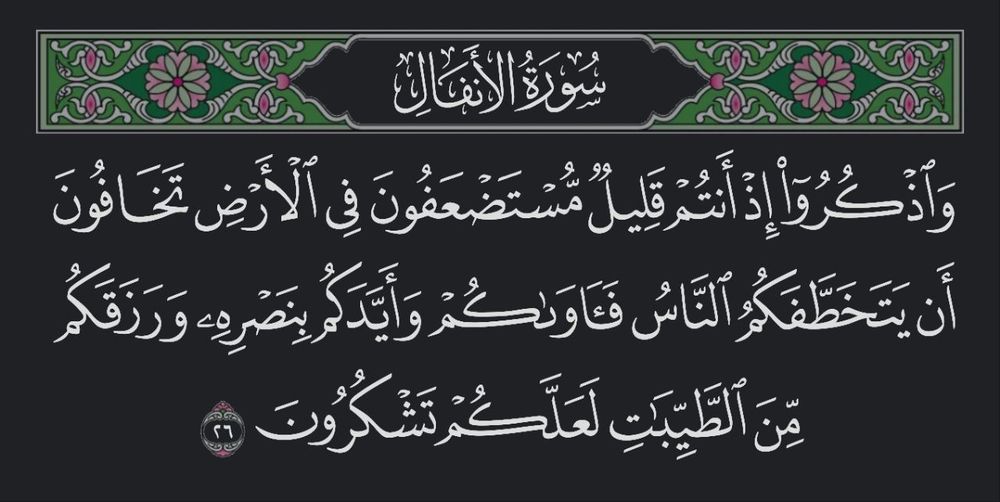 سُورَةُ الأَنفَالِ
وَٱذْكُرُوٓا۟ إِذْ أَنتُمْ قَلِيلٌ مُّسْتَضْعَفُونَ فِى ٱلْأَرْضِ تَخَافُونَ
أَن يَتَخَطَّفَكُمُ ٱلنَّاسُ فَـَٔاوَىٰكُمْ وَأَيَّدَكُم بِنَصْرِهِۦ وَرَزَقَكُم
مِّنَ ٱلطَّيِّبَـٰتِ لَعَلَّكُمْ تَشْكُرُونَ ٢٦